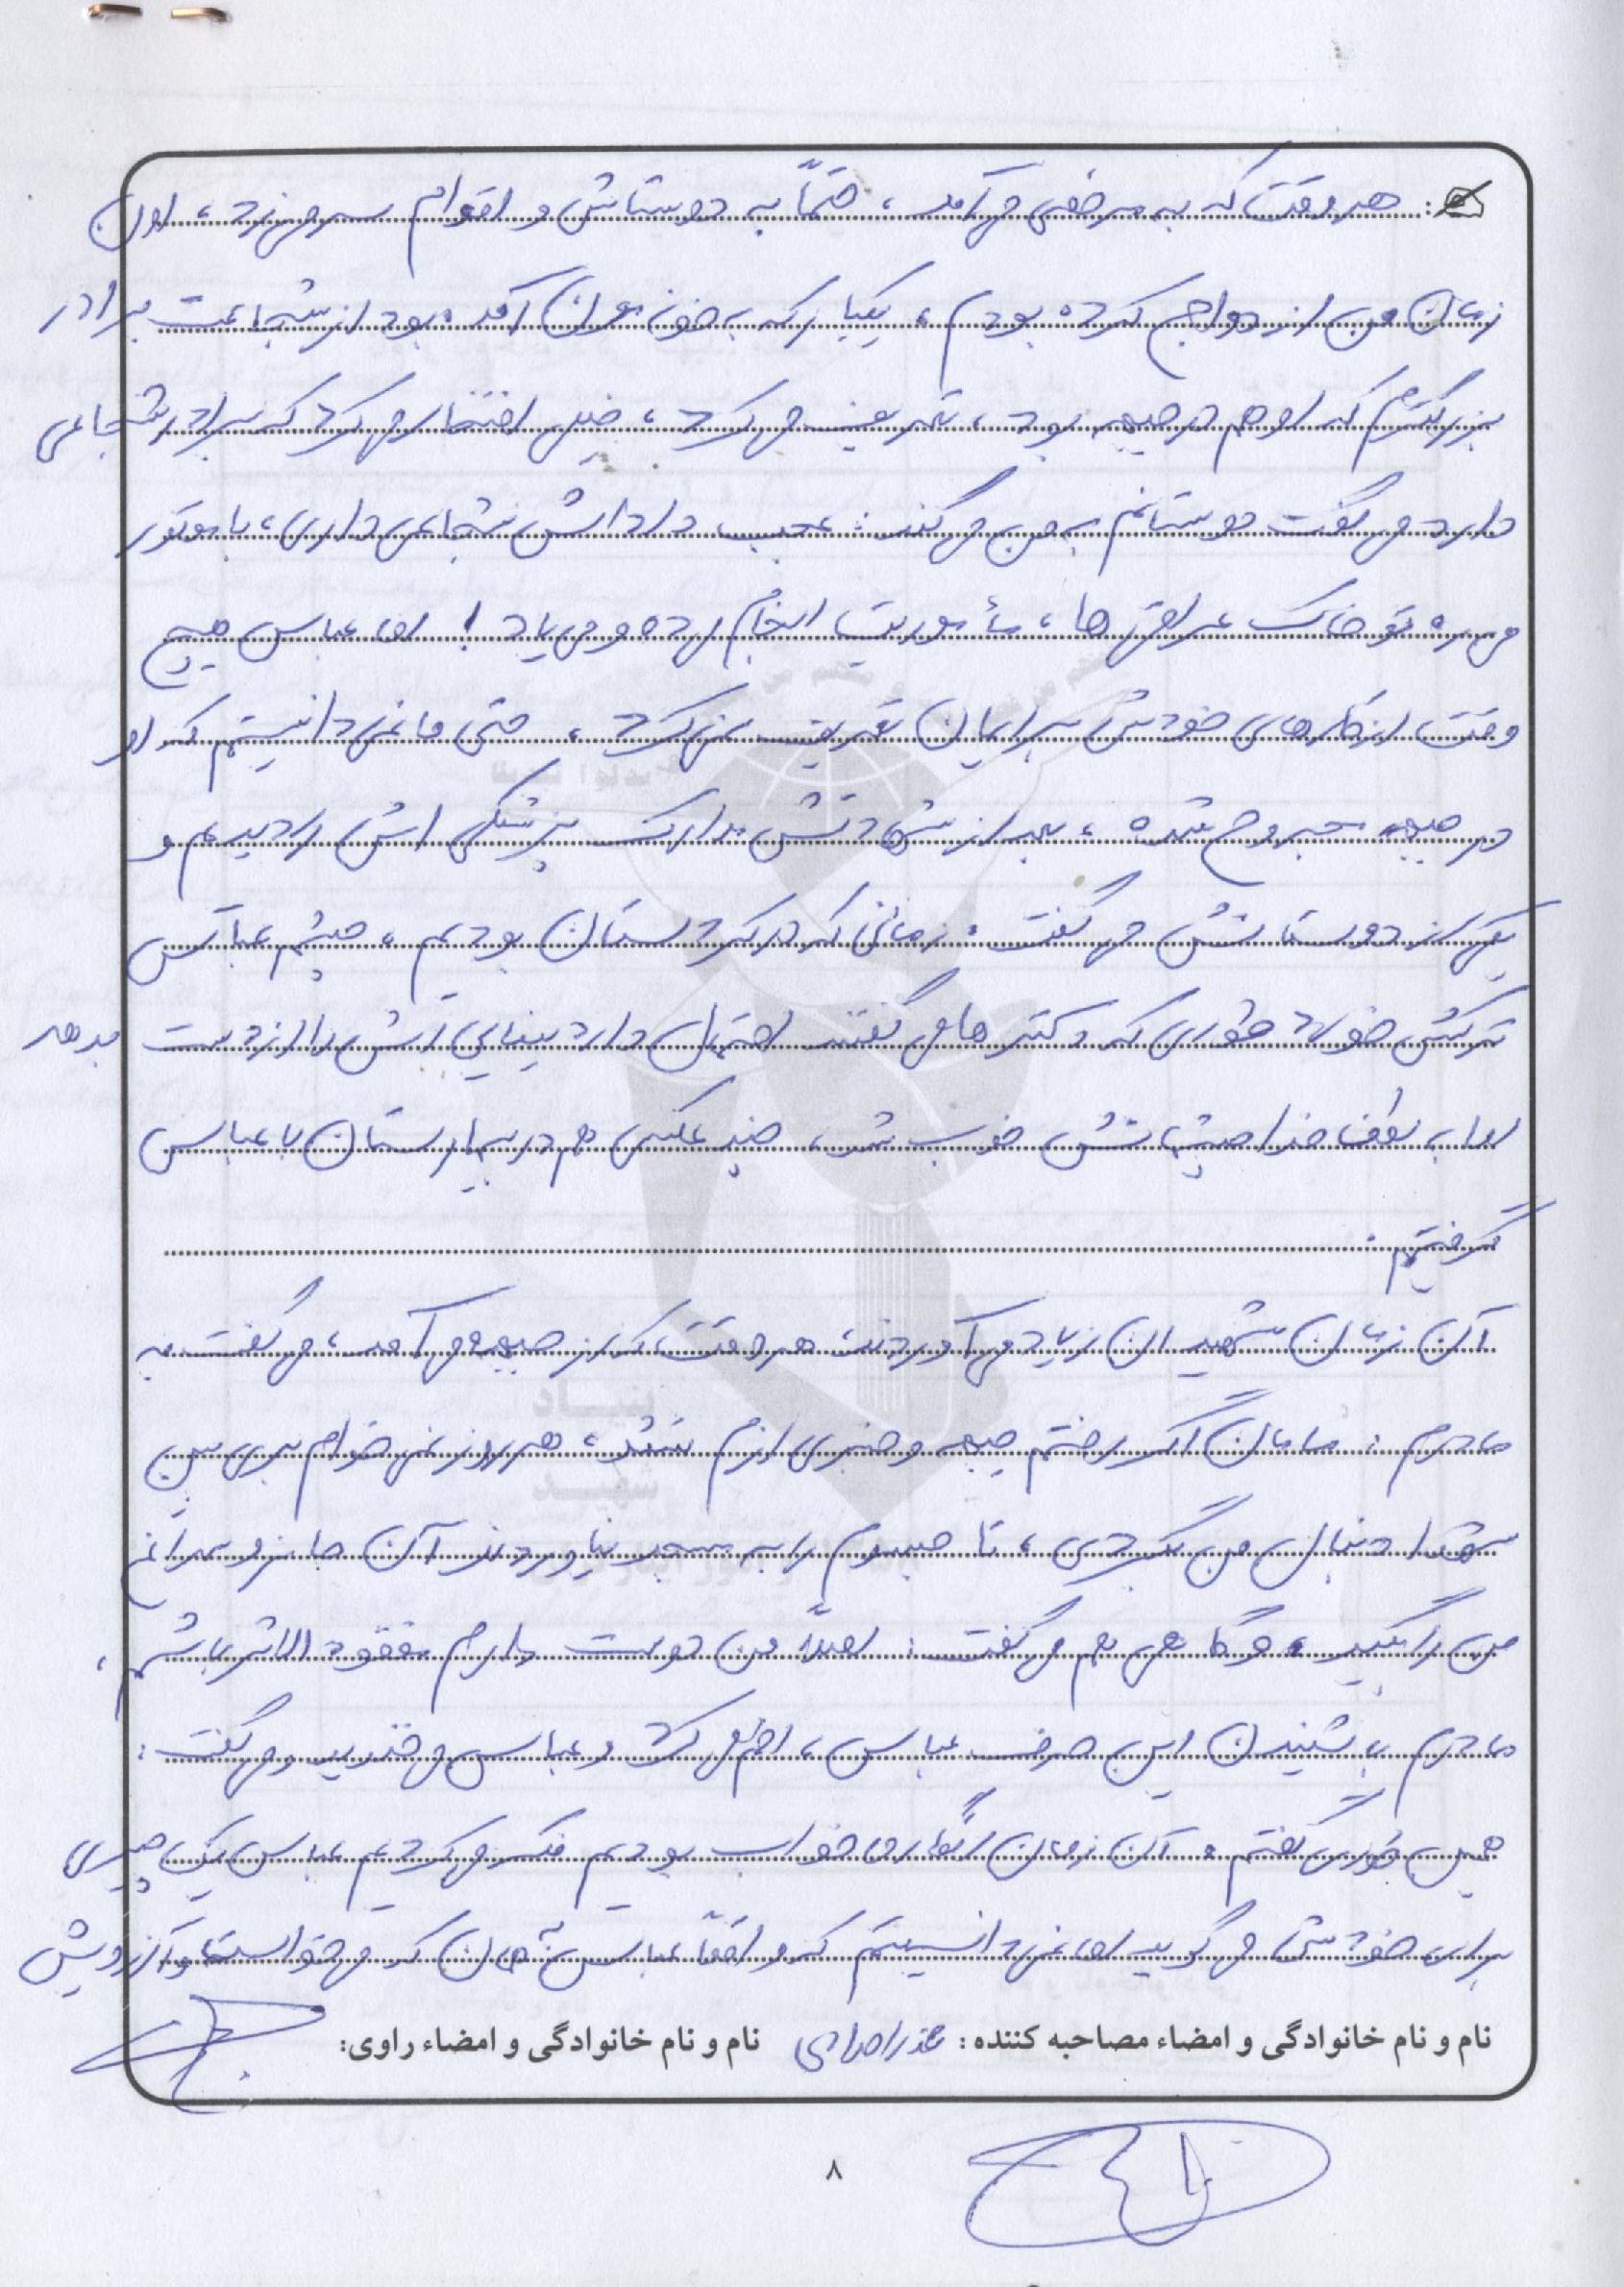 هر وقت که به مرخصی می‌آمد، حتماً به دوستانش و اقوام سر می‌زد، اون
زمان من ازدواج کرده بودم، یکبار که به خونه‌مون آمده بود از شجاعت برادر
بزرگترم که او هم در جبهه بود، تعریف می‌کرد، خیلی افتخار می‌کرد که برادر شجاعی
دارد می‌گفت دوستانم به من می‌گند: عجب داداش شجاعی داری، با موتور
می‌ره تو خاک عراقی‌ها، مأموریت انجام می‌ده و می‌یاد! اما عباس هیچ
وقت از کارهای خودش برایمان تعریف نمی‌کرد، حتی ما نمی‌دانستیم که او
در جبهه مجروح شده، بعد از شهادتش مدارک پزشکی اش را دیدیم و
یکی از دوستانش می‌گفت: زمانی که در کردستان بودیم، چشم عباس
ترکش خورد طوری که دکترها می‌گفتند احتمال دارد بینایی اش را از دست بدهد
اما به لطف خدا چشمانش خوب شد، چند عکسی هم در بیمارستان با عباس
گرفتیم.
آن زمان شهیدان زیاد می‌آوردند هر وقت که از جبهه می‌آمد، می‌گفت به
مادرم: مامان اگر رفتم جبهه و خبری ازم نشد، هر روز نمی‌خوام بری بین
شهدا دنبال من بگردی، تا جسدم را به مسجد نیاوردند آن جا نرو سراغم
من را بگیر، و گاهی هم می‌گفت: اصلاً من دوست دارم مفقود الاثر باشم،
مادرم با شنیدن این حرف عباس، اخم می‌کرد و عباس می‌خندید و می‌گفت:
همین جوری گفتم. آن زمان انگار ما خواب بودیم فکر می‌کردیم عباس یک چیزی
برای خودش می‌گوید اما نمی‌دانستیم که واقعاً عباس همان که می‌خواست و آرزویش
نام و نام خانوادگی و امضاء مصاحبه کننده: نام و نام خانوادگی و امضاء راوی:
۸